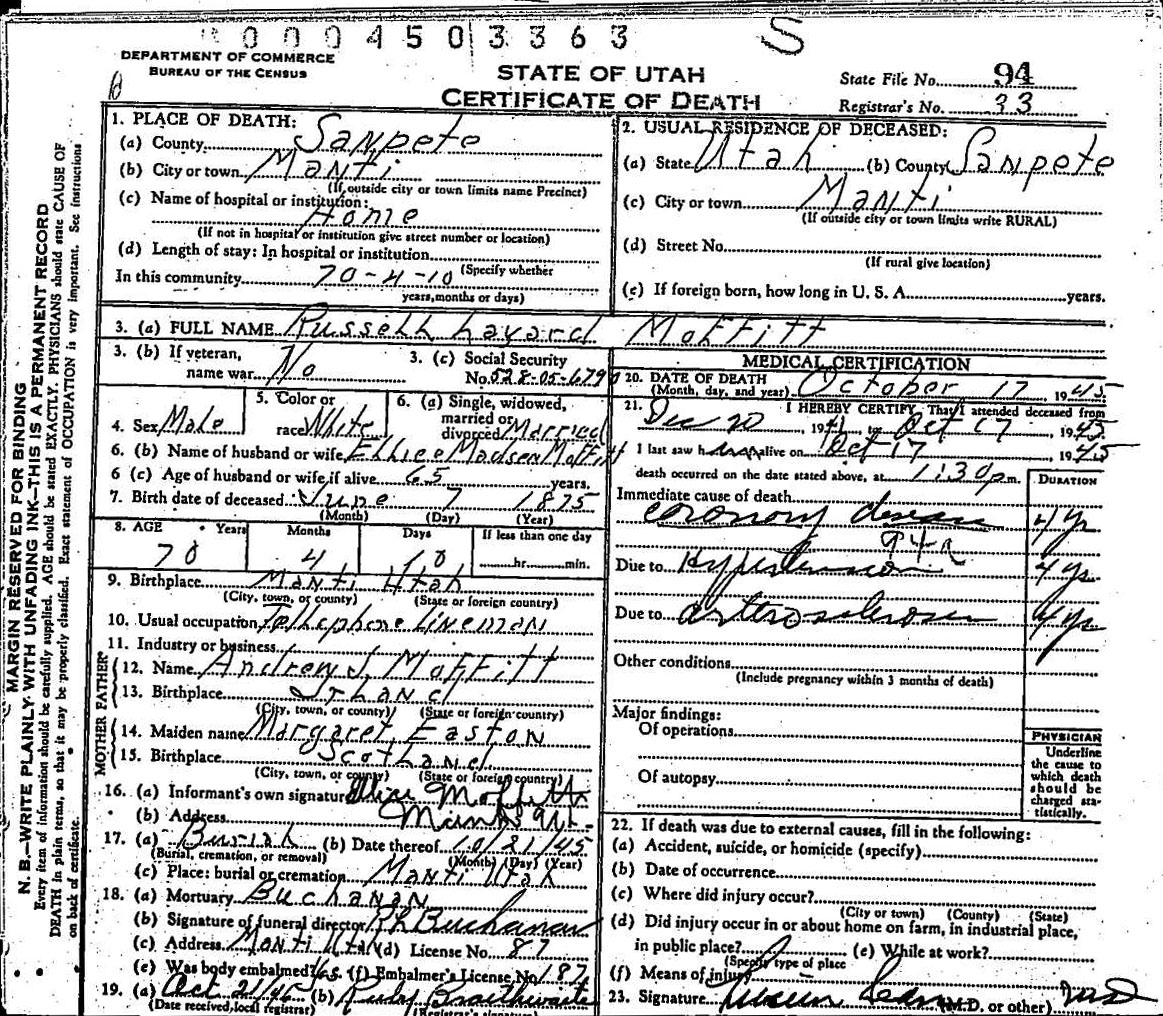 0004503363 S
DEPARTMENT OF COMMERCE
BUREAU OF THE CENSUS
STATE OF UTAH
CERTIFICATE OF DEATH
State File No. 94
Registrar's No. 33
1. PLACE OF DEATH:
(a) County Sanpete
(b) City or town Manti
(If outside city or town limits name Precinct)
(c) Name of hospital or institution:
Home
(If not in hospital or institution give street number or location)
(d) Length of stay: In hospital or institution
(Specify whether
In this community 70-4-10
years, months or days)
2. USUAL RESIDENCE OF DECEASED:
(a) State Utah (b) County Sanpete
(c) City or town Manti
(If outside city or town limits write RURAL)
(d) Street No.
(If rural give location)
(e) If foreign born, how long in U. S. A. years.
3. (a) FULL NAME Russell Lavard Moffitt
3. (b) If veteran,
name war No
3. (c) Social Security
No. 528-05-6790
4. Sex Male
5. Color or
race White
6. (a) Single, widowed,
married or
divorced Married
6. (b) Name of husband or wife Madsen Moffitt
6 (c) Age of husband or wife if alive 65 years.
7. Birth date of deceased June 7 1875
(Month) (Day) (Year)
8. AGE Years Months Days If less than one day
70 4 10 hr. min.
9. Birthplace Manti Utah
(City, town, or county) (State or foreign country)
10. Usual occupation Telhephone Lineman
11. Industry or business
FATHER
12. Name Andrew J. Moffitt
13. Birthplace
(City, town, or county) (State or foreign country)
MOTHER
14. Maiden name Margaret Easton
15. Birthplace Scotland
(City, town, or county) (State or foreign country)
16. (a) Informant's own signature Moffitt
(b) Address Manti Ut.
17. (a) Burial (b) Date thereof 10/21/45
(Burial, cremation, or removal) (Month) (Day) (Year)
(c) Place: burial or cremation Manti Utah
18. (a) Mortuary Buchanan
(b) Signature of funeral director Buchanan
(c) Address Manti Utah (d) License No. 87
(e) Was body embalmed? Yes (f) Embalmer's License No. 187
19. (a) Oct 21/45 (b) Ruby Braithwaite
(Date received local registrar) (Registrar's signature)
MEDICAL CERTIFICATION
20. DATE OF DEATH
(Month, day, and year) October 17 1945
21. I HEREBY CERTIFY, That I attended deceased from
Dec 20, 1941 to Oct 17, 1945
I last saw him alive on Oct 17 1945
death occurred on the date stated above, at 1:30 p m.
DURATION
Immediate cause of death
coronary disease 4 yr
94a
Due to Hypertension 4 yr
Due to arterosclerosis 4 yr
Other conditions
(Include pregnancy within 3 months of death)
Major findings:
Of operations
Of autopsy
PHYSICIAN
Underline
the cause to
which death
should be
charged sta-
tistically.
22. If death was due to external causes, fill in the following:
(a) Accident, suicide, or homicide (specify)
(b) Date of occurrence
(c) Where did injury occur?
(City or town) (County) (State)
(d) Did injury occur in or about home on farm, in industrial place,
in public place? (e) While at work?
(Specify type of place
(f) Means of injury
23. Signature (M.D. or other) MD
MARGIN RESERVED FOR BINDING
N. B.—WRITE PLAINLY WITH UNFADING INK—THIS IS A PERMANENT RECORD
Every item of information should be carefully supplied. AGE should be stated EXACTLY. PHYSICIANS should state CAUSE OF
DEATH in plain terms, so that it may be properly classified. Exact statement of OCCUPATION is very important. See instructions
on back of certificate.